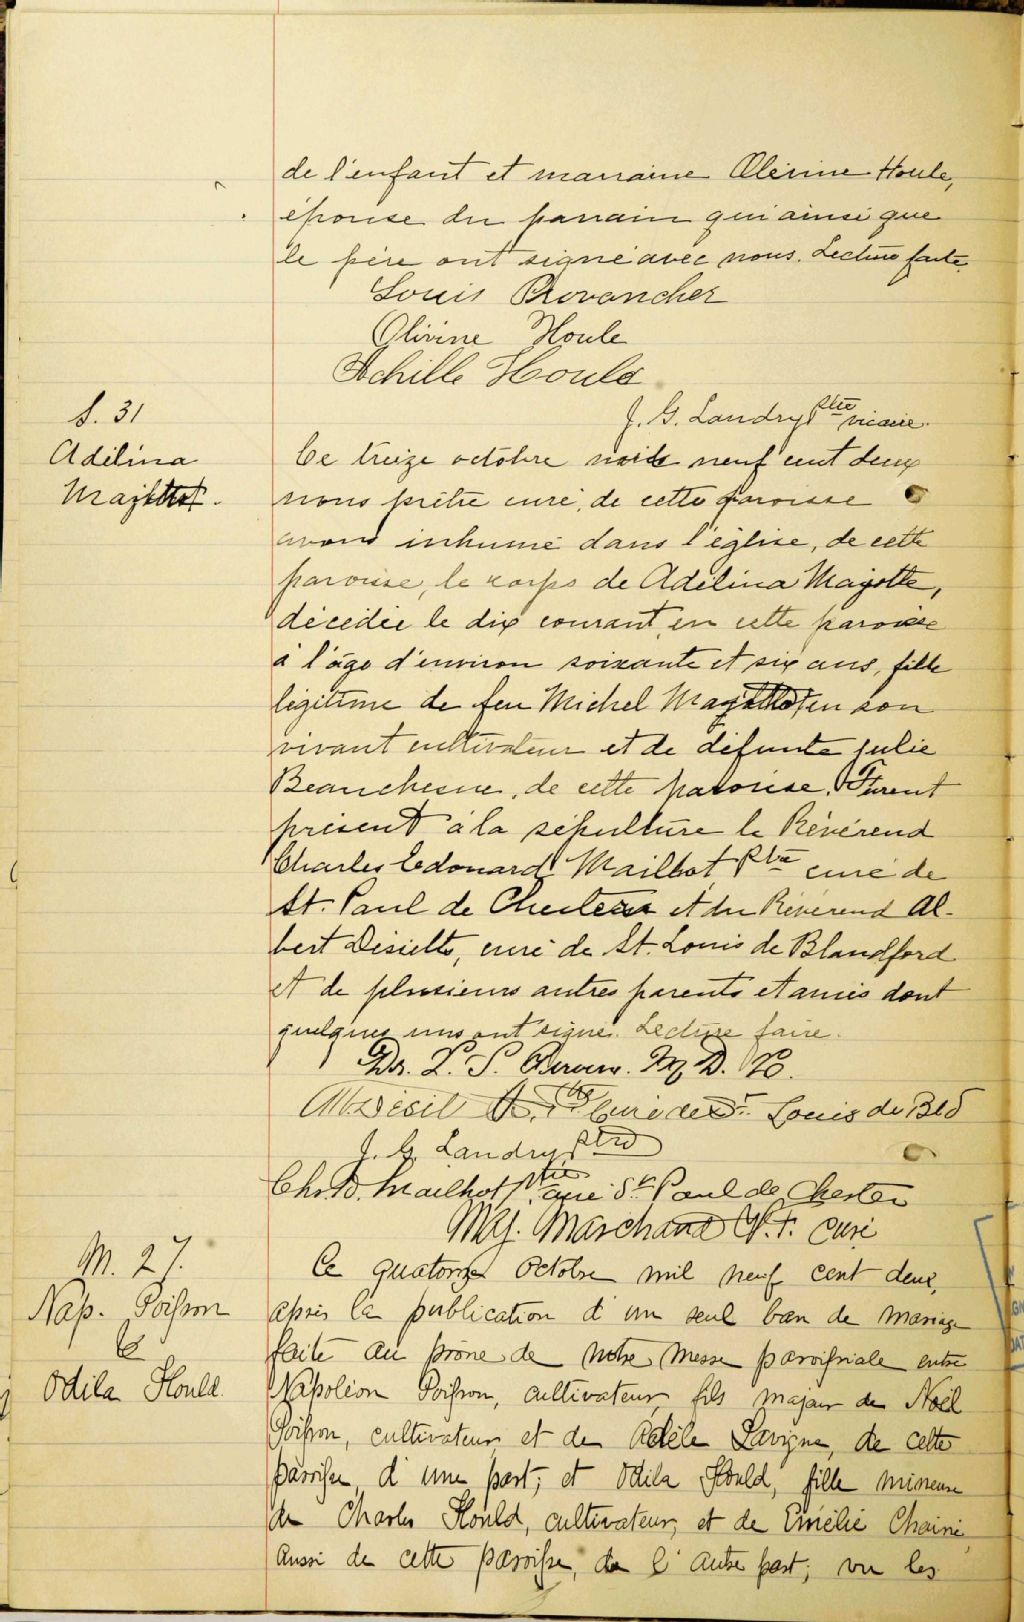 de l'enfant et marraine Olivine Houle,
épouse du parrain qui ainsi que
le père ont signé avec nous. Lecture faite.
Louis Provancher
Olivine Houle
Achille Houle
J. G. Landry ptre vicaire.
S. 31
Adélina
Ce treize octobre neuf cent deux
nous prêtre curé, de cette paroisse
avons inhumé dans l'église, de cette
paroisse, le corps de Adélina Majotte,
décédée le dix courant, en cette paroisse
à l'âge d'environ soixante et six ans, fille
légitime de feu Michel en son
vivant cultivateur et de défunte Julie
Beauchesne, de cette paroisse. Furent
présent à la sépulture le Révérend
Charles Edouard Mailhot Ptre curé de
St. Paul de Chester et du Révérend Al-
bert Désilets, curé de St. Louis de Blandford
et de plusieurs autres parents et amis dont
quelques uns ont signé. Lecture faire.
Dr. L. S. M. D.
Curé de St. Louis de Bld
J. G. Landry ptre
Chs. Ed. Mailhot Ptre curé St Paul de Chester
Maj. Marchand curé
M. 27.
Nap. Poisson
&
Odila Hould.
Ce quatorze Octobre mil neuf cent deux,
après la publication d'un seul ban de mariage
faite au prône de notre messe paroissiale entre
Napoléon Poisson, cultivateur, fils majeur de Noël
Poisson, cultivateur, et de Adèle Lavigne, de cette
paroisse, d'une part; et Odila Hould, fille mineure
de Charles Hould, cultivateur, et de Emélie Chainé,
aussi de cette paroisse, de l'autre part; vu les